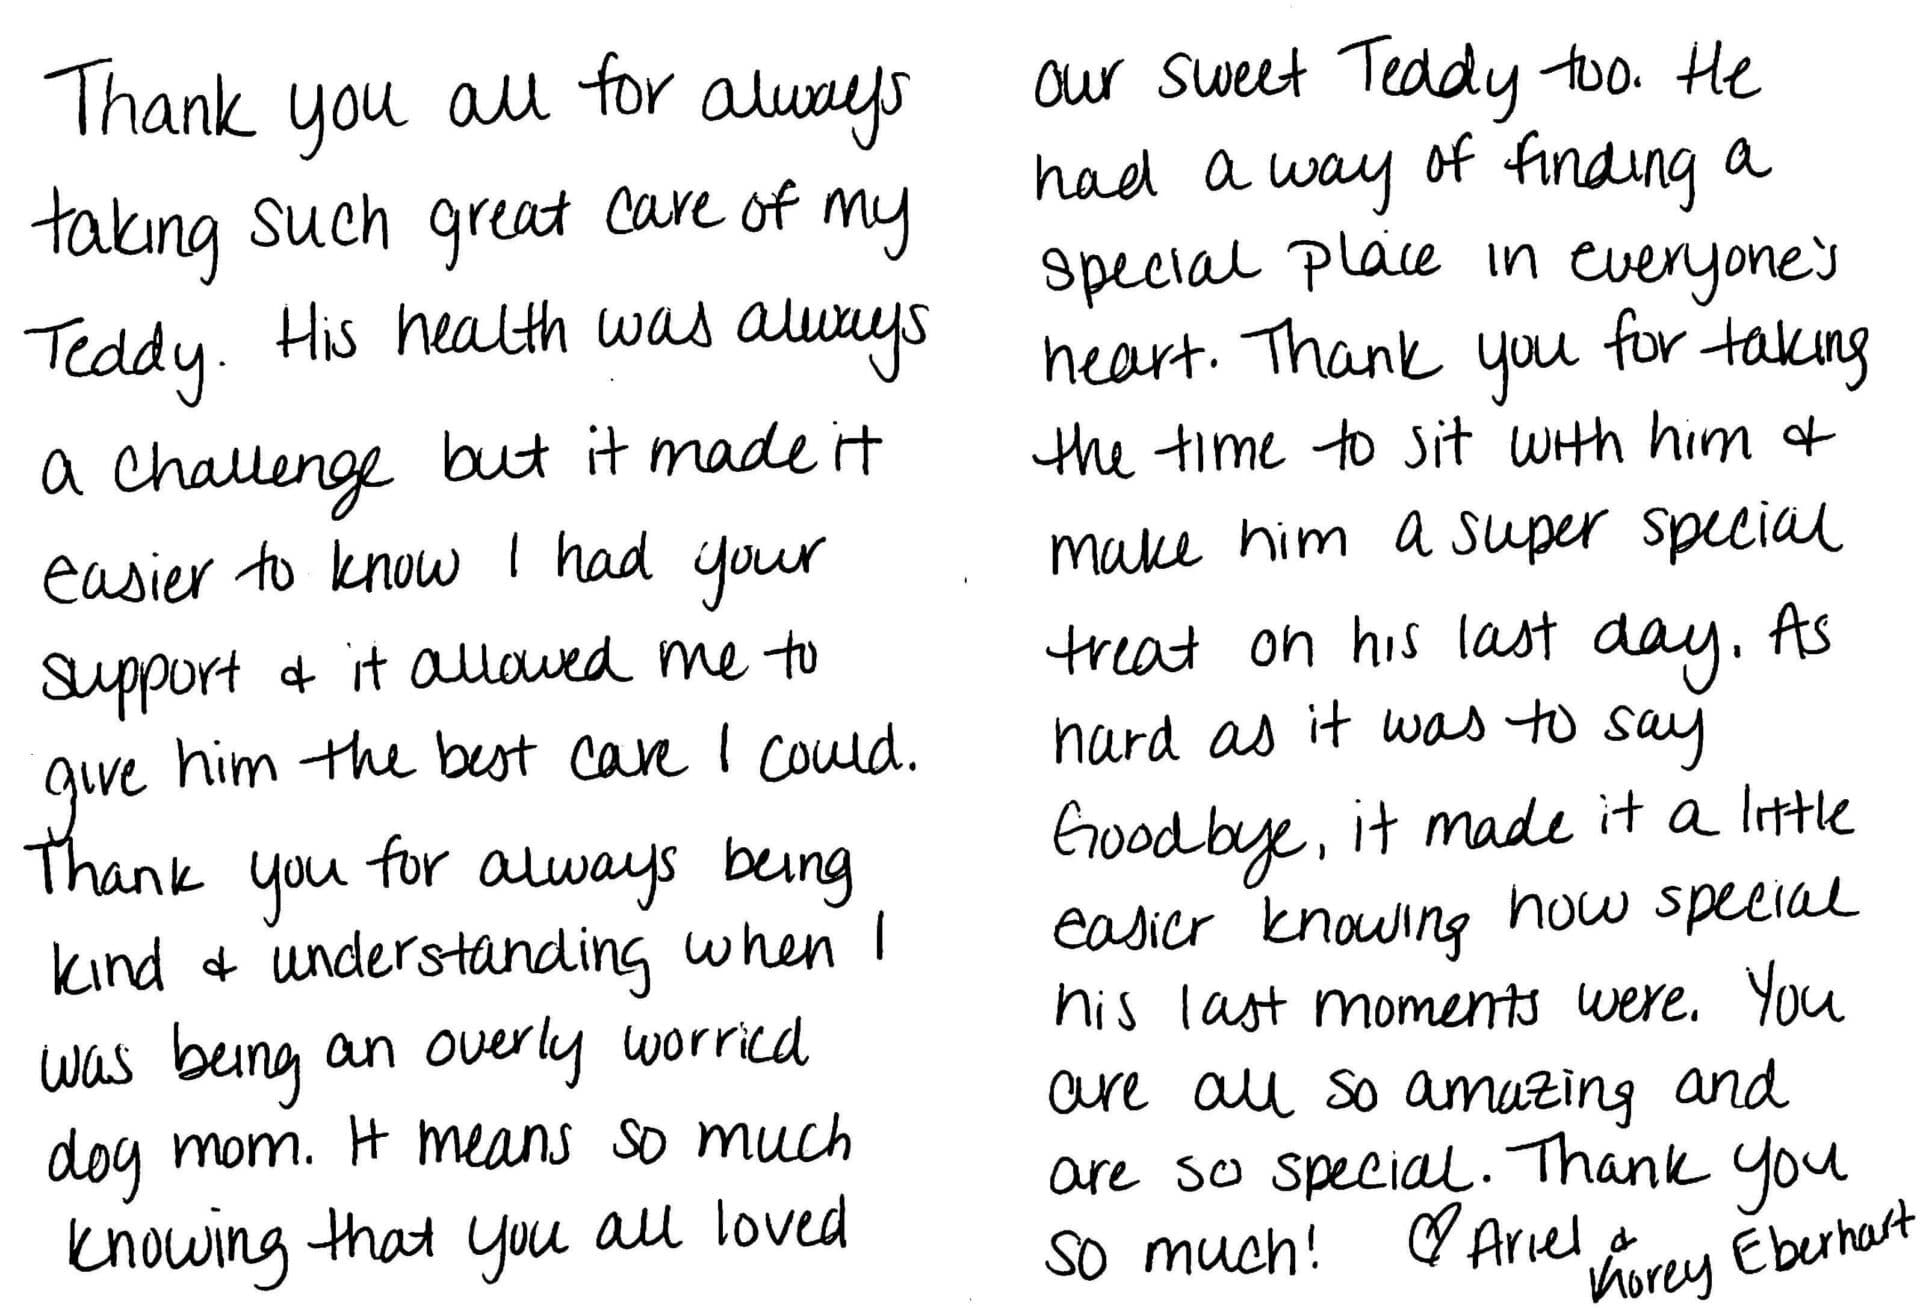 Thank you all for always
taking such great care of my
Teddy. His health was always
a challenge but it made it
easier to know I had your
support & it allowed me to
give him the best care I could.
Thank you for always being
kind & understanding when I
was being an overly worried
dog mom. It means so much
knowing that you all loved
our sweet Teddy too. He
had a way of finding a
special place in everyone's
heart. Thank you for taking
the time to sit with him &
make him a super special
treat on his last day. As
hard as it was to say
Goodbye, it made it a little
easier knowing how special
his last moments were. You
are all so amazing and
are so special. Thank you
so much! ♡ Ariel &
Khorey Eberhart